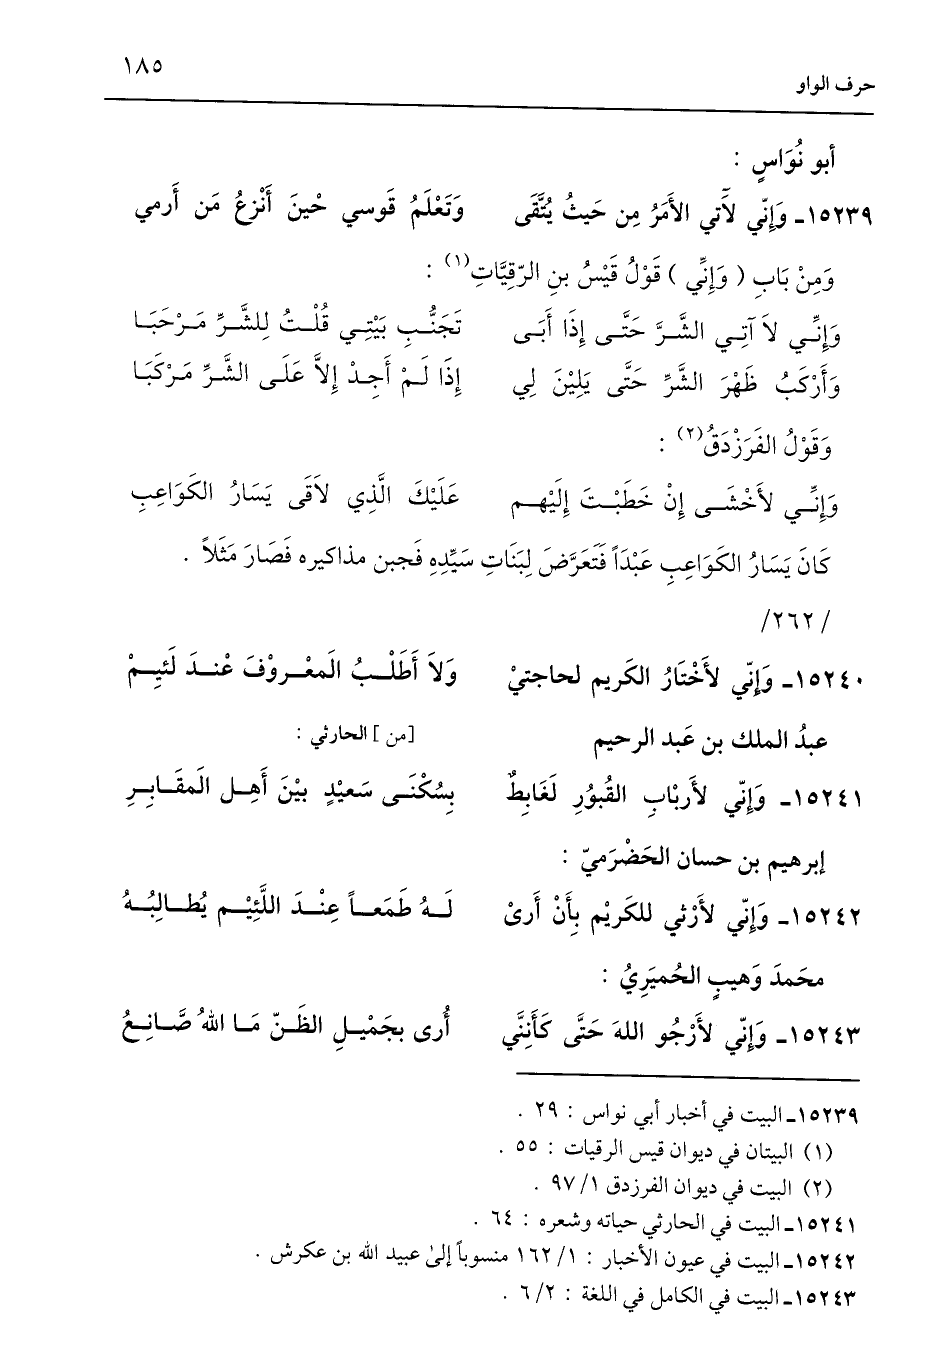 حرف الواو ١٨٥
أبو نُوَاسٍ :
١٥٢٣٩ـ وَإِنّي لآتي الأمَرُ مِن حَيثُ يُتَّقَى وَتَعْلَمُ قَوسي حْينَ أَنْزعُ مَن أَرمي
وَمِنْ بَابِ ( وَإِنِّي ) قَوْلُ قَيْسُ بنِ الرّقيَّاتِ(١) :
وَإِنِّي لاَ آتِي الشَّرَّ حَتَّى إِذَا أَبَى تَجَنُّبِ بَيْتِي قُلْتُ لِلشَّرِّ مَرْحَبَا
وَأَرْكَبُ ظَهْرَ الشَّرِّ حَتَّى يَلِيْنَ لِي إِذَا لَمْ أَجِدْ إِلاَّ عَلَى الشَّرِّ مَرْكَبَا
وَقَوْلُ الفَرَزْدَقُ(٢) :
وَإِنِّي لأَخْشَى إِنْ خَطَبْتَ إِلَيْهِم عَلَيْكَ الَّذِي لاَقَى يَسَارُ الكَوَاعِبِ
كَانَ يَسَارُ الكَوَاعِبِ عَبْدَاً فَتَعَرَّضَ لِبَنَاتِ سَيِّدِهِ فَجبن مذاكيره فَصَارَ مَثَلاً .
/٢٦٢/
١٥٢٤٠ـ وَإِنّي لأَخْتَارُ الكَريم لحاجتيْ وَلاَ أَطَلْبُ الَمعْروْفَ عْندَ لَئيِمْ
عبدُ الملك بن عَبد الرحيم [من ] الحارثي :
١٥٢٤١ـ وَإِنّي لأَربْابِ القُبوُرِ لَغَابِطٌ بِسُكْنَى سَعيْدٍ بيْنَ أَهِل الَمقَابِرِ
إبرهيم بن حسان الحَضْرَميّ :
١٥٢٤٢ـ وَإِنّي لأَرْثي للكَريْم بِأَنْ أَرىْ لَهُ طَمَعاً عِنْدَ اللَّئِيْم يُطالِبُهُ
محَمدَ وَهيبٍ الحُميَرِيُ :
١٥٢٤٣ـ وَإِنّي لأَرْجُو اللهَ حَتَّى كَأَننَّي أُرى بجَمْيلِ الظَنّ مَا اللهُ صَّانِعُ
١٥٢٣٩ـ البيت في أخبار أبي نواس : ٢٩ .
(١) البيتان في ديوان قيس الرقيات : ٥٥ .
(٢) البيت في ديوان الفرزدق ٩٧/١ .
١٥٢٤١ـ البيت في الحارثي حياته وشعره : ٦٤ .
١٥٢٤٢ـ البيت في عيون الأخبار : ١٦٢/١ منسوباً إلىٰ عبيد الله بن عكرش .
١٥٢٤٣ـ البيت في الكامل في اللغة : ٦/٢ .